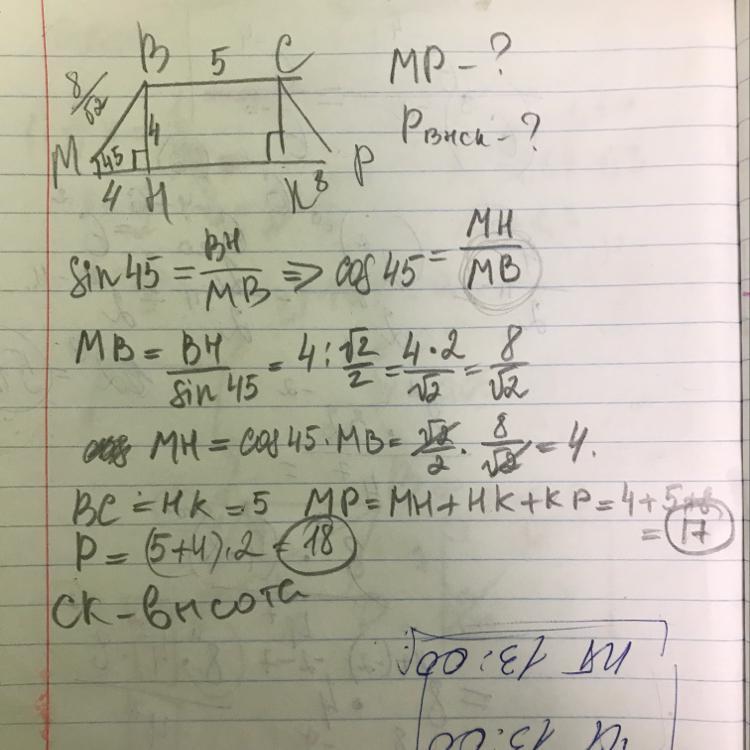 B 5 C MP - ?
8/√2
4 PВНСК - ?
M 45 P
4 H K 8
sin 45 = BH/MB => cos 45 = MH/MB
MB = BH/sin 45 = 4 : √2/2 = 4·2/√2 = 8/√2
MH = cos 45 · MB = √2/2 · 8/√2 = 4.
BC = HK = 5 MP = MH + HK + KP = 4 + 5 + 8
= 17
P = (5+4)·2 = 18
CK – высота
ПТ 13:00
13:00